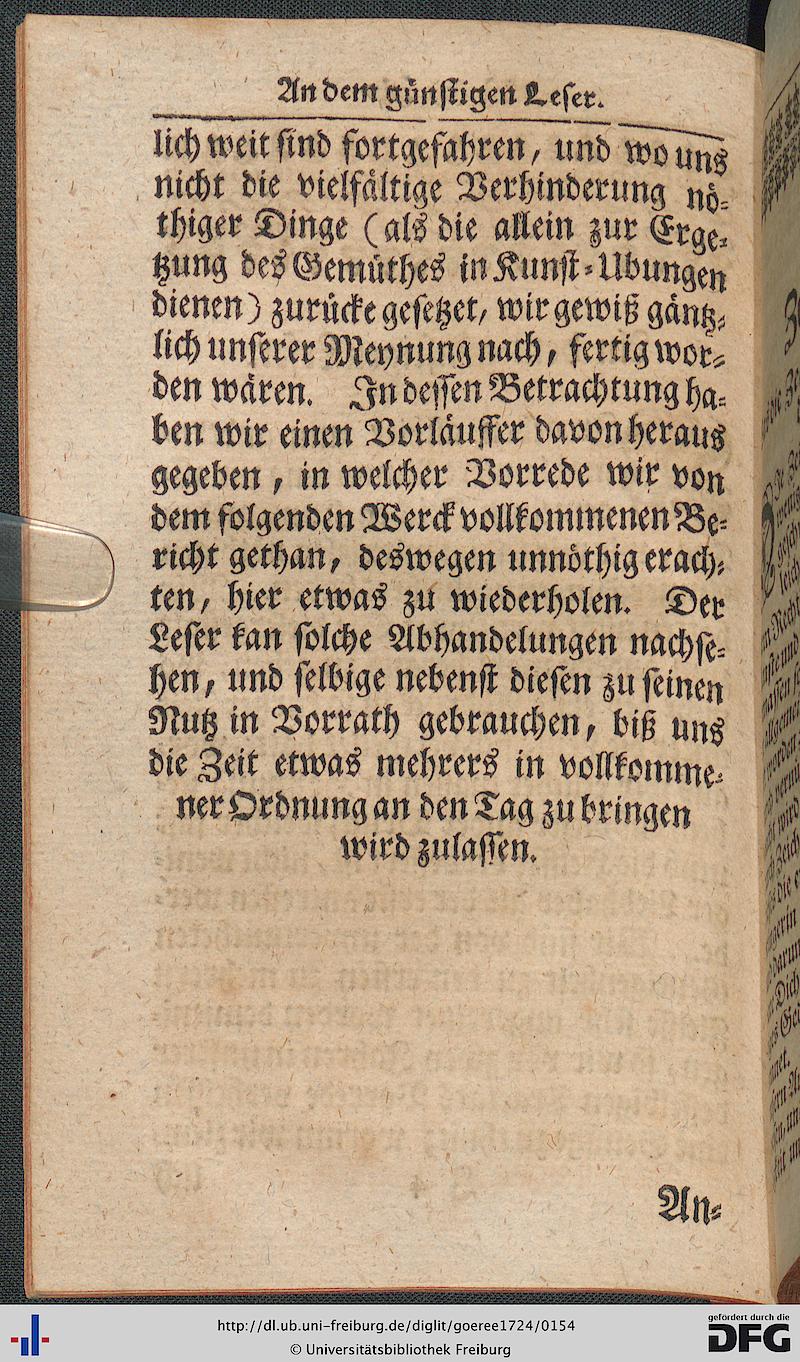 An dem günstigen Leser.
lich weit sind fortgefahren, und wo uns
nicht die vielfältige Verhinderung nö-
thiger Dinge (als die allein zur Erge-
tzung des Gemüthes in Kunst-Ubungen
dienen) zurücke gesetzet, wir gewiß gäntz-
lich unserer Meynung nach, fertig wor-
den wären. In dessen Betrachtung ha-
ben wir einen Vorläuffer davon heraus
gegeben, in welcher Vorrede wir von
dem folgenden Werck vollkommenen Be-
richt gethan, deswegen unnöthig erach-
ten, hier etwas zu wiederholen. Der
Leser kan solche Abhandelungen nachse-
hen, und selbige nebenst diesen zu seinen
Nutz in Vorrath gebrauchen, biß uns
die Zeit etwas mehrers in vollkomme-
ner Ordnung an den Tag zu bringen
wird zulassen.
An-
http://dl.ub.uni-freiburg.de/diglit/goeree1724/0154
© Universitätsbibliothek Freiburg
gefördert durch die
DFG